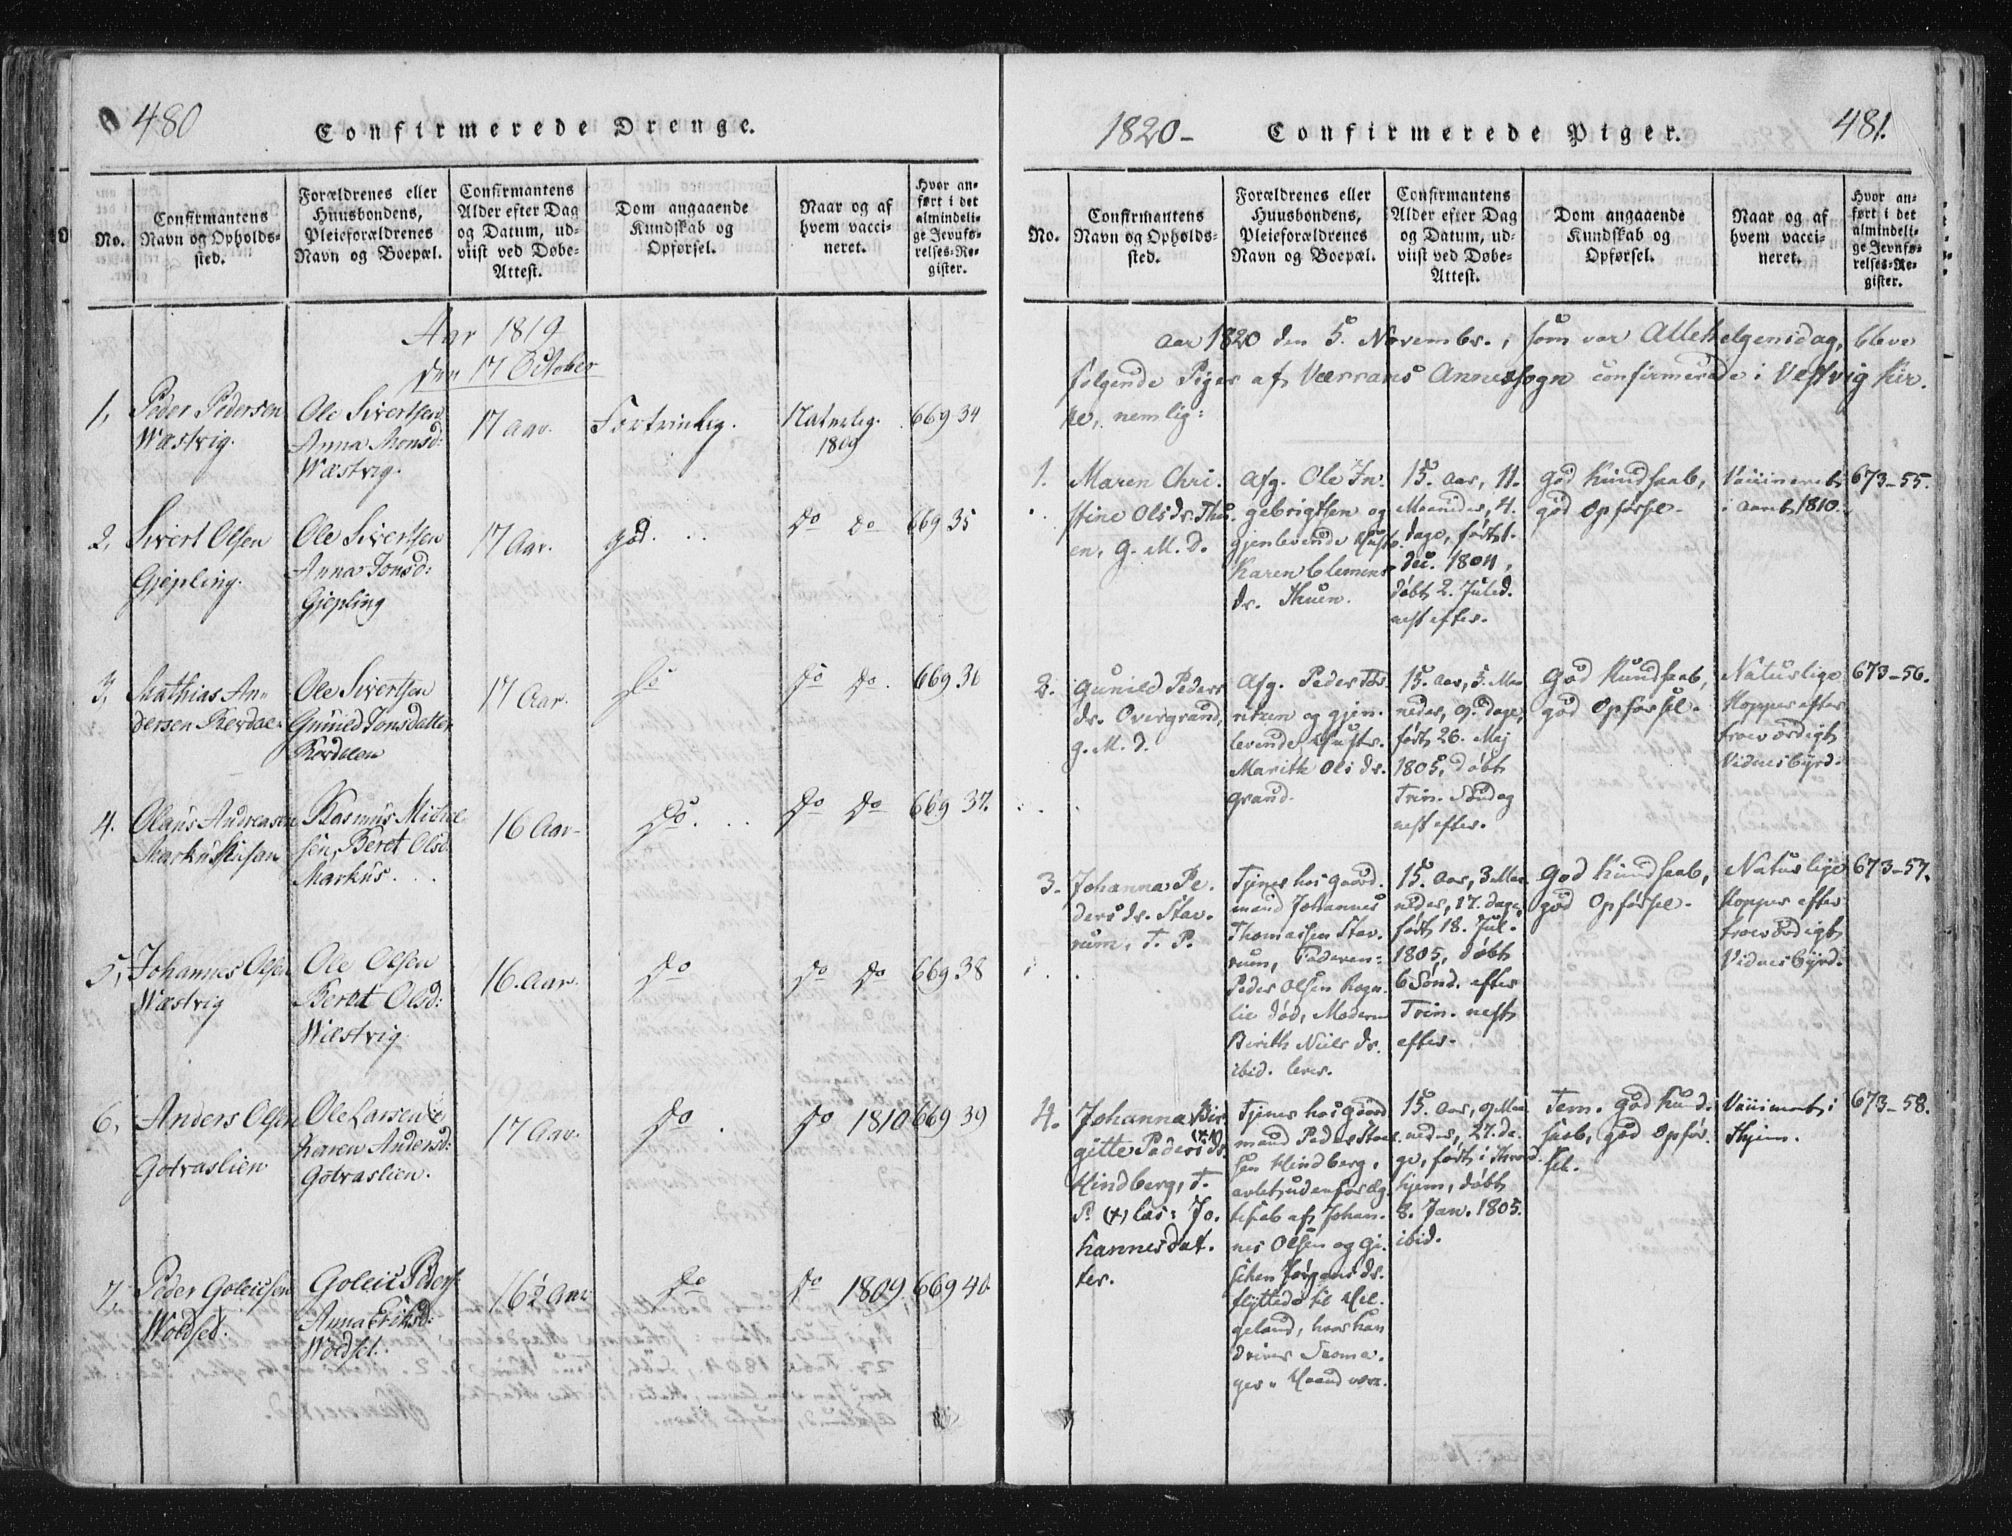 480
Confirmerede Drenge.
No.
Confirmantens
Navn og Opholds-
sted.
Forældrenes eller
Huusbondens,
Pleieforældrenes
Navn og Boepæl.
Confirmantens
Alder efter Dag
og Datum, ud-
viist ved Døbe-
Attest.
Dom angaaende
Kundskab og
Opførsel.
Naar og af
hvem vacci-
neret.
Hvor an-
ført i det
almindeli-
ge Jevnfø-
relses-Re-
gister.
Aar 1819
den 17 October
1, Peder Pedersen
Wæstvig.
Ole Sivertsen
Anna Monsd:
Wæstvig.
17 Aar.
Fortrinlig.
Naturlig.
1809
669 34
2, Sivert Olsen
Gjepling.
Ole Sivertsen
Anna Jonsd:
Gjepling
17 Aar.
god. . .
Do Do
669 35
3, Mathias An-
dersen
Ole Sivertsen
Gunild Jonsdatter
17 Aar.
Do
Do Do.
669 36
4. Olaus Andreasen
Rasmus Michel
sen, Beret Olsd.
Markus. . .
16 Aar-
Do. . . .
Do Do
669 37.
5, Johannes Olsen
Wæstvig
Ole Olsen
Beret Olsd:
Wæstvig
16. Aar.
Do
Do Do
669 38
6, Anders Olsen
Gotvaslien
Ole Larsen
Karen Andersd:
Gotvaslien.
17 Aar.
Do .
Do 1810
669 39
7, Peder
Anna Eriksd:
16½ Aar
Do
Do 1809
669 40.
1820-
Confirmerede Piger.
481.
No.
Confirmantens
Navn og Opholds-
sted.
Forældrenes eller
Huusbondens,
Pleieforældrenes
Navn og Boepæl.
Confirmantens
Alder efter Dag
og Datum, ud-
viist ved Døbe-
Attest.
Dom angaaende
Kundskab og
Opførsel.
Naar og af
hvem vacci-
neret.
Hvor an-
ført i det
almindeli-
ge Jevnfø-
relses-Re-
gister.
Aar 1820 den 5. Novembr., som var Allehelgensdag, bleve
følgende Piger af Værrans Annexsogn confirmerede i Vestvig Kir-
ke, nemlig:
1. Maren Chri-
stine Olsdr. Thu-
en, G. M. D.
Afg. Ole In-
gebrigtsen og
gjenlevende Hustr.
Karen Clemens
dr. Thuen.
15. Aar, 11.
Maaneder, 4.
dage, født 1.
Dec. 1804,
døbt 2. Juled.
nest efter.
God Kundskab,
god Opførsel.
Vaccineret
i Aaret 1810.
673-55.
2. Gunild Peders
dr. Overgrand,
G. M. D.
Afg. Peder
og gjen-
levende Hustr.
Marith Ols dr.
Grand.
15. Aar, 5. Maa
neder, 9. dage,
født 26. Maj
1805, døbt
Trin. Søndag
nest efter.
God Kundskab,
god Opførsel.
Naturlige
Kopper efter
troeværdigt
Vidnesbyrd.
673-56.
3. Johanna Pe-
dersdr. Stav-
rum, T. P.
Tjener hos Gaard-
mand Johannes
Thomassen Stav-
rum, Faderen:
Peder Olsen
død, Moderen
Berith Niels dr.
ibid. lever.
15. Aar, 3 Maa
neder, 17. dage,
født 18. Jul.
1805, døbt
6 Sønd. efter
Trin. nest
efter.
God Kundskab,
god Opførsel.
Naturlige
Kopper efter
troeværdigt
Vidnesbyrd.
673-57.
4. Johanna Bir-
gitte Pedersdr.
(+)
Hindberg, T.
P. (+) læs: Jo-
hannesdat-
ter.
Tjener hos Gaard
mand Peder
sen Hindberg,
avlet udenfor Æg-
teskab af Johan-
nes Olsen og Gi-
Jørgensdr.
flyttede til Hel-
geland, hvor han
driver Skoma-
ger-Haandværk.
15. Aar, 9 Maa
neder, 27. da-
ge, født i Thrond-
hjem, døbt
8. Jan. 1805.
ibid.
Tem. god Kund-
skab, god Opfør-
sel.
Vaccineret i
Thjem.
673-58.